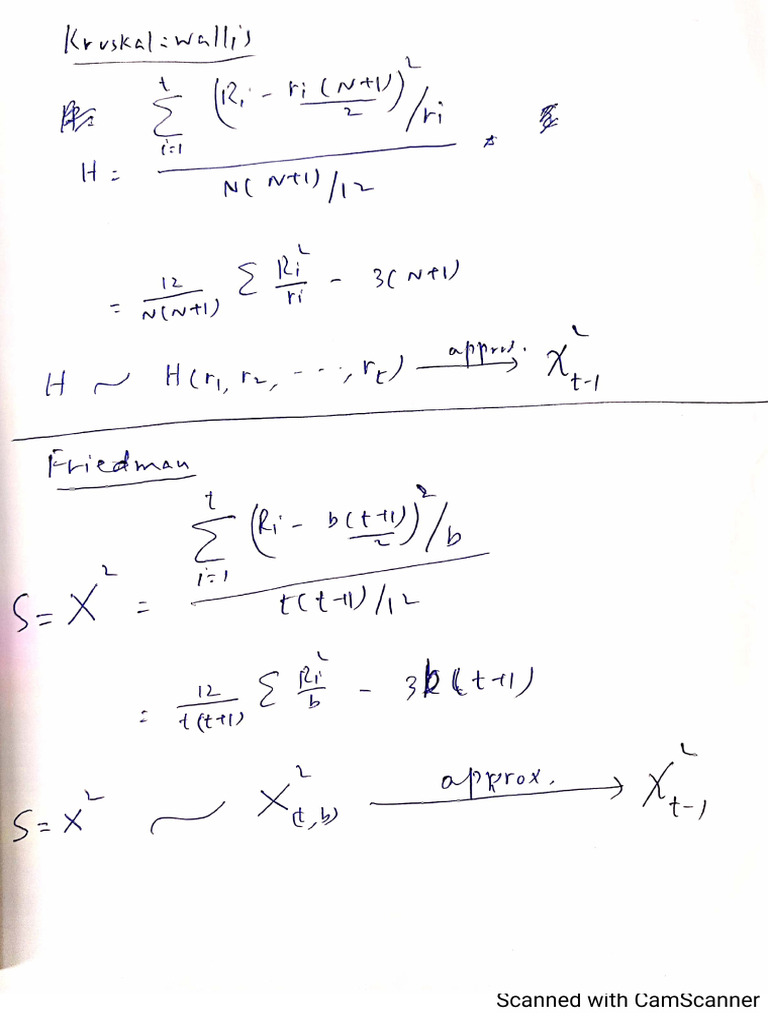 Kruskal-wallis
H = \frac{\sum_{i=1}^{t} (R_i - \frac{r_i(N+1)}{2})^2 / r_i}{N(N+1)/12}
= \frac{12}{N(N+1)} \sum \frac{R_i^2}{r_i} - 3(N+1)
H ~ H(r_1, r_2, ..., r_t) \xrightarrow{approx.} X^2_{t-1}
Friedman
S = X^2 = \frac{\sum_{i=1}^{t} (R_i - \frac{b(t+1)}{2})^2 / b}{t(t+1)/12}
= \frac{12}{t(t+1)} \sum \frac{R_i^2}{b} - 3b(t+1)
S = X^2 ~ X^2_{(t,b)} \xrightarrow{approx.} X^2_{t-1}
Scanned with CamScanner